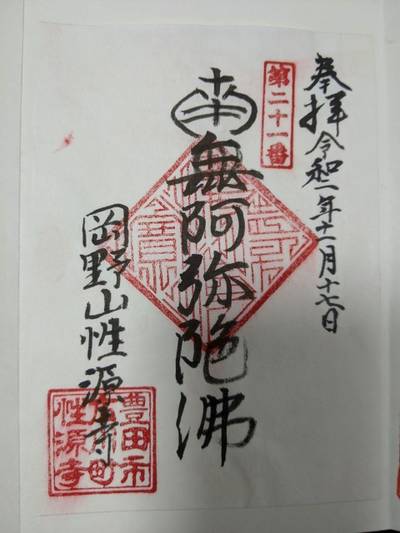 奉拝 令和一年十一月十七日
第二十一番
南無阿弥陀佛
岡野山性源寺
豊田市
性源寺